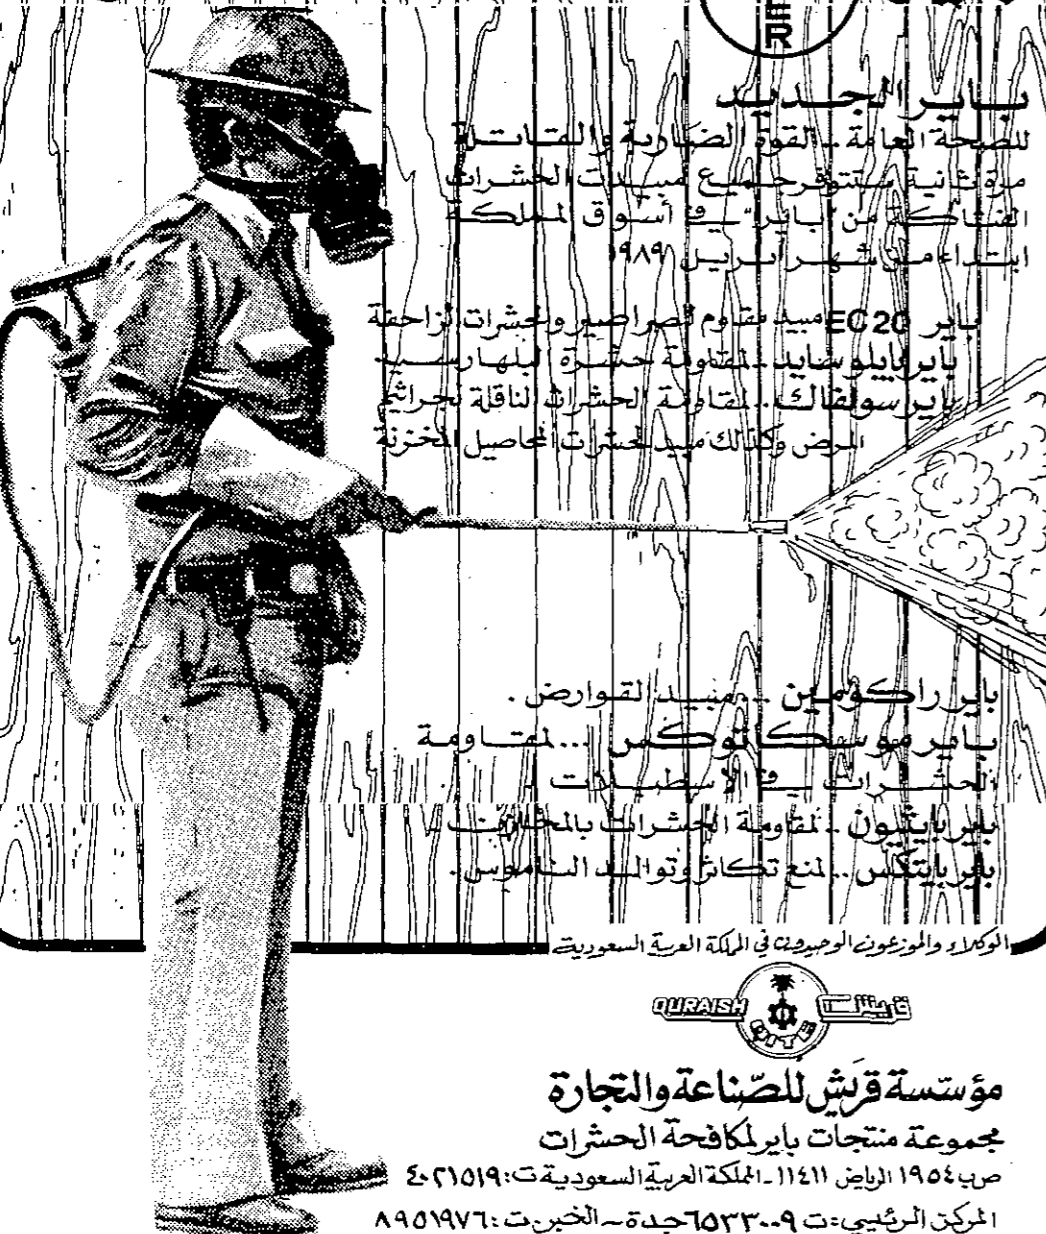 ER
باير الجديد
للصحة العامة - القوة الضاربة والقاتلة
مرة ثانية ستتوفر جميع مبيدات الحشرات
الفتاكة من "باير" في أسواق المملكة
ابتداء من شهر أبريل ١٩٨٩
باير EC20 مبيد مقاوم للصراصير والحشرات الزاحفة
باير بايلوسايد - لمقاومة حشرة البلهارسيا
باير سولفاك.. لمقاومة الحشرات الناقلة لجراثيم
المرض وكذلك مبيد لحشرات المحاصيل المخزنة
باير راكومين ... مبيد القوارض .
باير موسكاتوكس ... لمقاومة
الحشرات في الاسطبلات .
باير بايثيون - لمقاومة الحشرات بالمخازن -
باير بايتكس .. لمنع تكاثر وتوالد الناموس .
الوكلاء والموزعون الوحيدون في المملكة العربية السعودية
QURAISH QITE قريش
مؤسسة قريش للصناعة والتجارة
مجموعة منتجات باير لمكافحة الحشرات
ص ب ١٩٥٤ الرياض ١١٤١١ - المملكة العربية السعودية ت: ٤٠٢١٥١٩
المركز الرئيسي: ت ٦٥٣٣٠٠٩ جدة - الخبر ت: ٨٩٥١٩٧٦